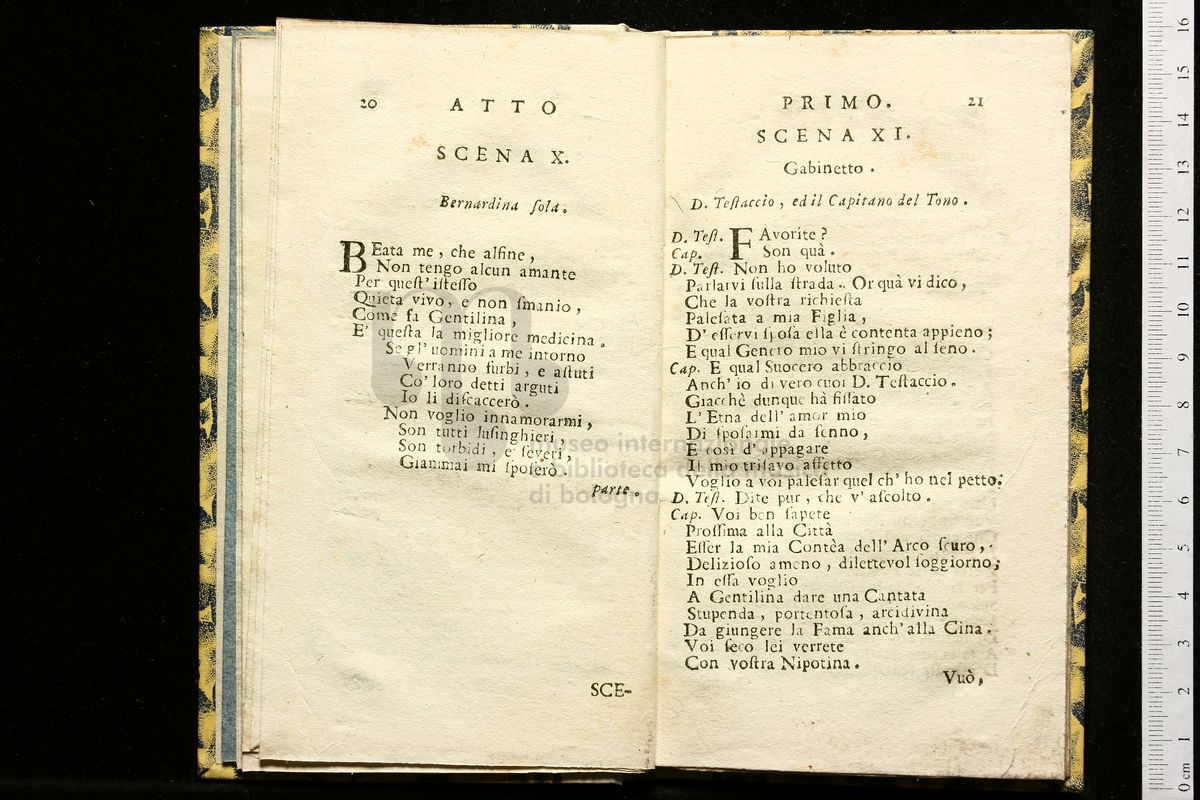 20 ATTO
SCENA X.
Bernardina ſola.
BEata me, che alfine,
Non tengo alcun amante
Per queſt' iſteſſo
Quieta vivo, e non ſmanio,
Come fa Gentilina,
E' queſta la migliore medicina.
Se gl' uomini a me intorno
Verranno furbi, e aſtuti
Co' loro detti arguti
Io li diſcaccerò.
Non voglio innamorarmi,
Son tutti luſinghieri,
Son torbidi, e ſeveri,
Giammai mi ſpoſerò.
parte.
SCE-
PRIMO. 21
SCENA XI.
Gabinetto.
D. Teſtaccio, ed il Capitano del Tono.
D. Teſt. FAvorite?
Cap. Son quà.
D. Teſt. Non ho voluto
Parlarvi ſulla ſtrada.. Or quà vi dico,
Che la voſtra richieſta
Paleſata a mia Figlia,
D' eſſervi ſpoſa ella è contenta appieno;
E qual Genero mio vi ſtringo al ſeno.
Cap. E qual Suocero abbraccio
Anch' io di vero cuor D. Teſtaccio.
Giacchè dunque hà fiſſato
L' Etna dell' amor mio
Di ſpoſarmi da ſenno,
E così d' appagare
Il mio triſavo affetto
Voglio a voi paleſar quel ch' ho nel petto.
D. Teſt. Dite pur, che v' aſcolto.
Cap. Voi ben ſapete
Proſſima alla Città
Eſſer la mia Contèa dell' Arco ſcuro,
Delizioſo ameno, dilettevol ſoggiorno;
In eſſa voglio
A Gentilina dare una Cantata
Stupenda, portentoſa, arcidivina
Da giungere la Fama anch' alla Cina.
Voi ſeco lei verrete
Con voſtra Nipotina.
Vuò,
museo internazionale
e biblioteca della musica
di bologna
0 cm 1 2 3 4 5 6 7 8 9 10 11 12 13 14 15 16